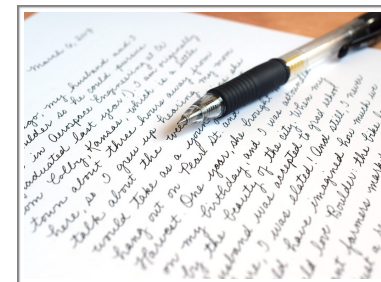 March 6, 2014
ago, my husband and I
ulder so he could pursue
in Aerospace Engineering at CU
aduated last year!) I am originally
om Colby, Kansas, which is a little
town about three hours away from
here, so I grew up hearing my mom
talk about the
would take as a young
hang out on Pearl St. and
Harvest. One year, she brought
on my birthday and I was astounded
by the beauty of the city. When my
usband was accepted to grad school
re, I was elated! And still I never
ld have imagined how much we
ld love Boulder: the bike
nt farmers mark
ust a